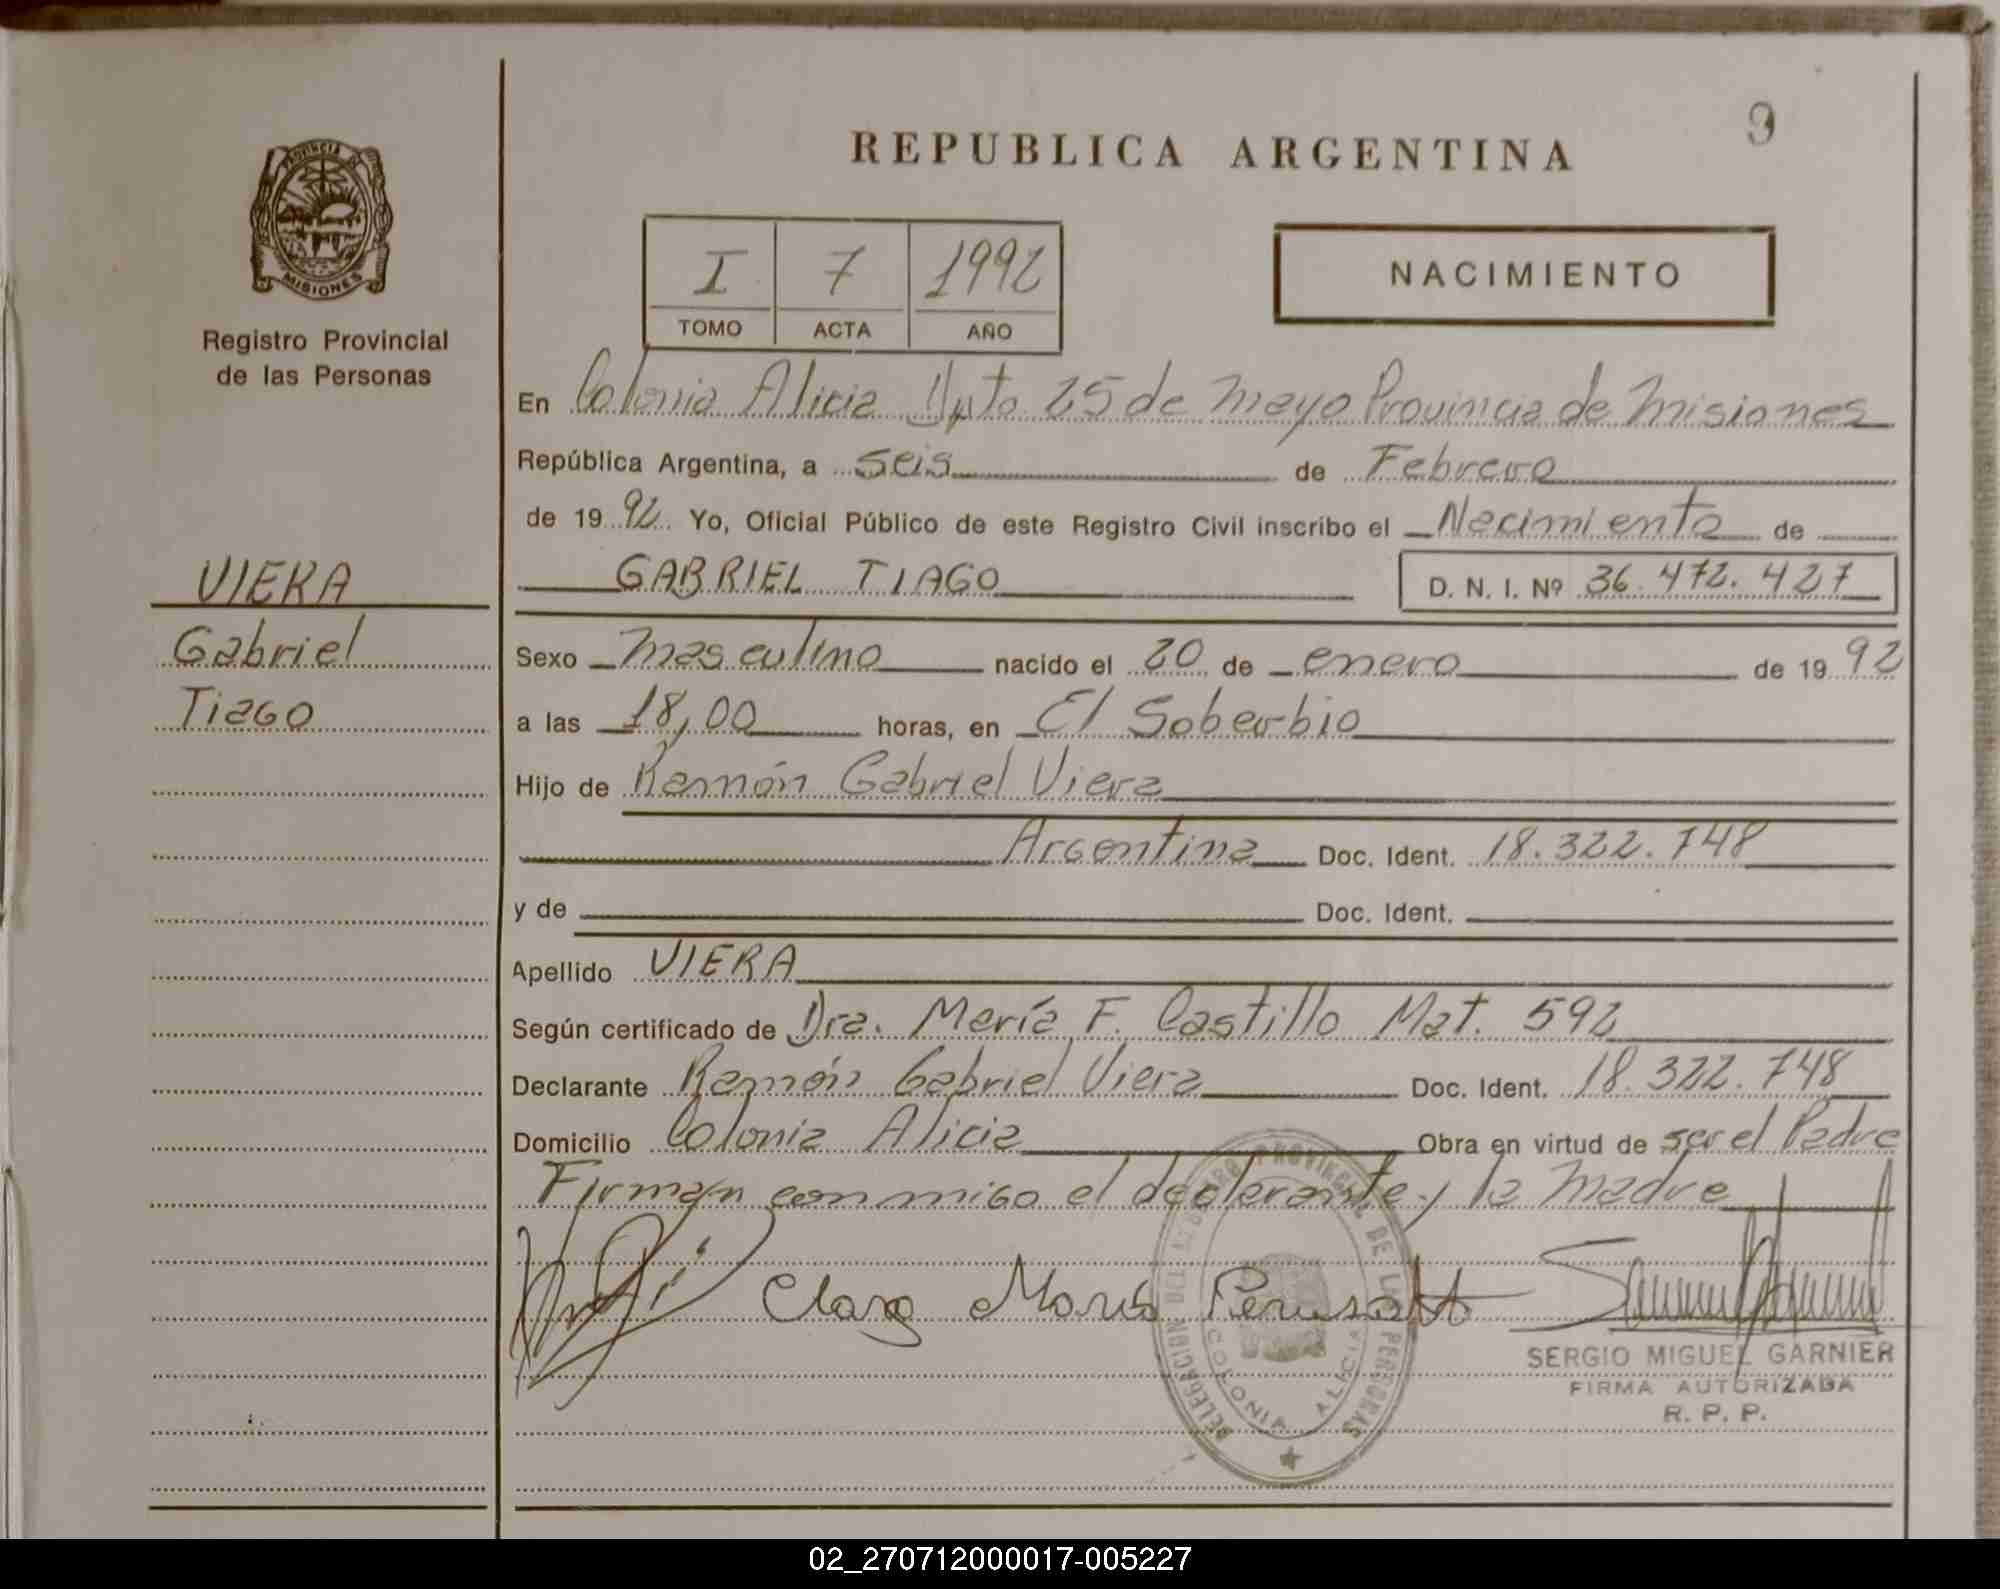 9
REPUBLICA ARGENTINA
PROVINCIA DE
MISIONES
Registro Provincial
de las Personas
I 7 1992
TOMO ACTA AÑO
NACIMIENTO
En Colonia Alicia Dpto 25 de Mayo Provincia de Misiones
República Argentina, a seis de Febrero
de 1992 Yo, Oficial Público de este Registro Civil inscribo el Nacimiento de
GABRIEL TIAGO D. N. I. Nº 36.472.427
VIERA
Gabriel
Tiago
Sexo Masculino nacido el 20 de enero de 1992
a las 18,00 horas, en El Soberbio
Hijo de Ramón Gabriel Viera
Argentina Doc. Ident. 18.322.748
y de Doc. Ident.
Apellido VIERA
Según certificado de Dra. María F. Castillo Mat. 592
Declarante Ramón Gabriel Viera Doc. Ident. 18.322.748
Domicilio Colonia Alicia Obra en virtud de ser el Padre
Firman conmigo el declarante y la Madre
Clara María
DELEGACION DEL REGISTRO PROVINCIAL DE LAS PERSONAS
COLONIA ALICIA
SERGIO MIGUEL GARNIER
FIRMA AUTORIZADA
R. P. P.
02_270712000017-005227